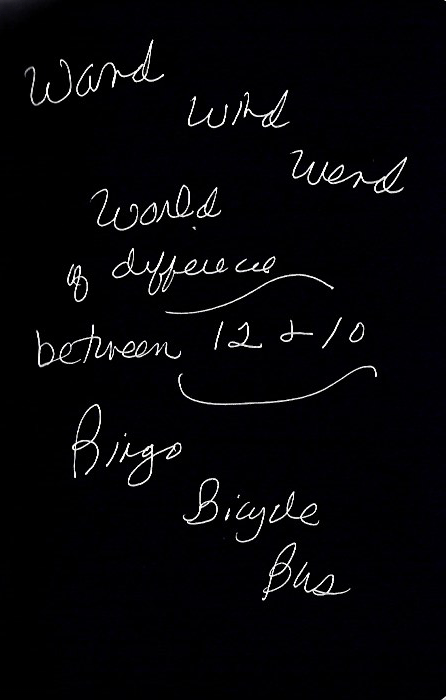 Wand
Wind
Wend
World
of difference
between 12 & 10
Bingo
Bicycle
Bus